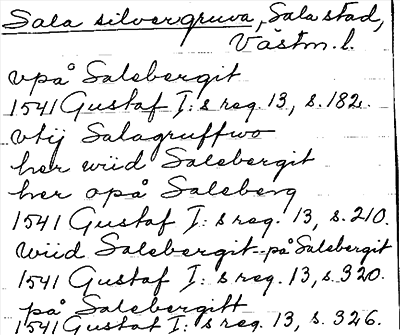 Sala silvergruva, Sala stad,
Västm. l.
vpå Salebergit
1541 Gustaf I:s reg. 13, s. 182.
vtij Salagruffwo
her wiid Salebergit
her opå Saleberg
1541 Gustaf I:s reg. 13, s. 210.
wiid Salebergit - på Salebergit
1541 Gustaf I:s reg. 13, s. 320.
på Salebergitt
1541 Gustaf I:s reg. 13, s. 326.